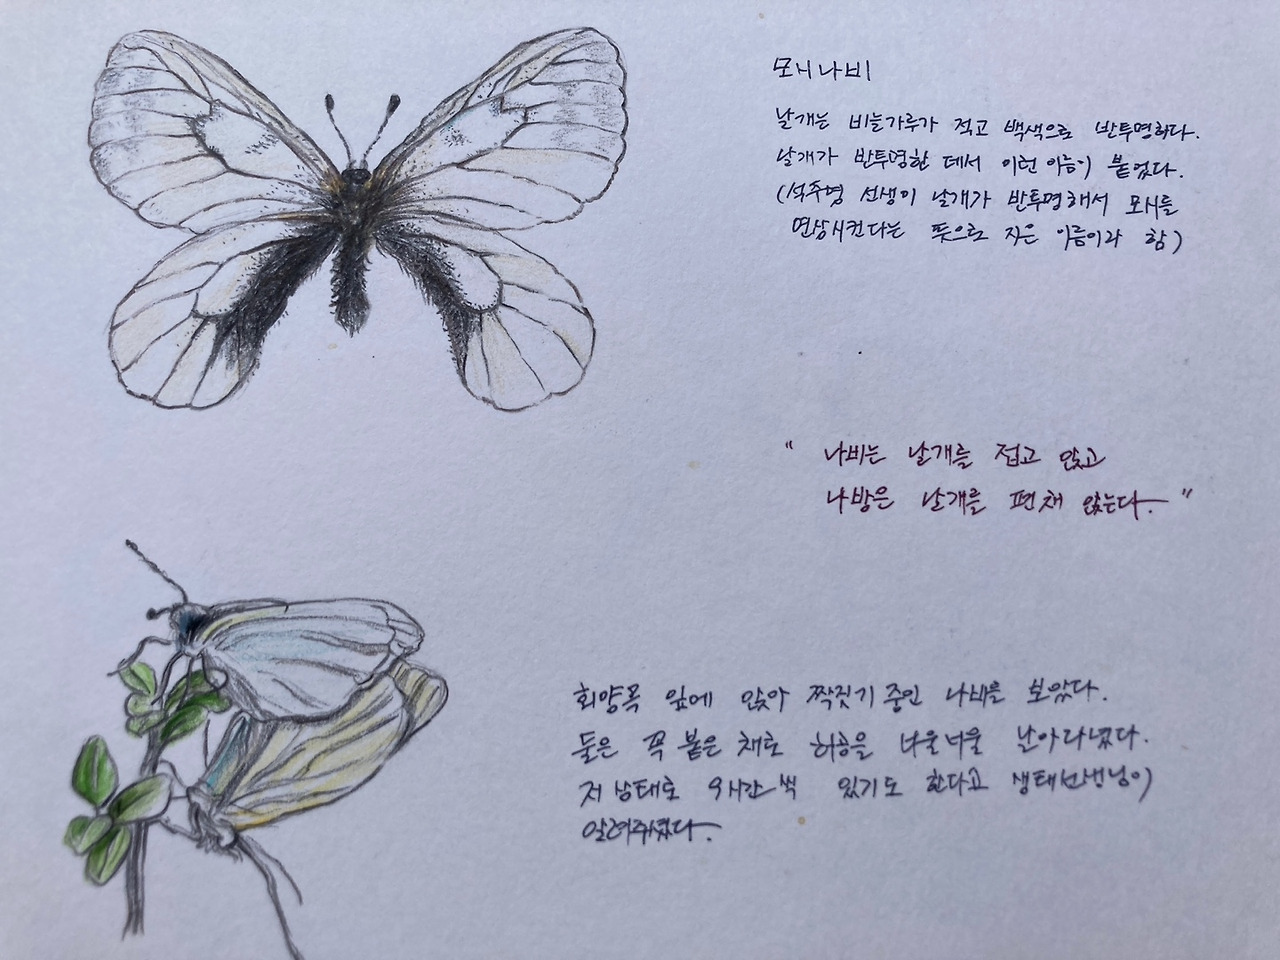 모시나비
날개는 비늘가루가 적고 백색으로 반투명하다.
날개가 반투명한 데서 이런 이름이 붙었다.
(석주명 선생이 날개가 반투명해서 모시를
연상시킨다는 뜻으로 지은 이름이라 함)
" 나비는 날개를 접고 앉고
나방은 날개를 편채 앉는다. "
회양목 잎에 앉아 짝짓기 중인 나비를 보았다.
둘은 꼭 붙은 채로 허공을 너울너울 날아다녔다.
저 상태로 9시간씩 있기도 한다고 생태선생님이
알려주셨다.